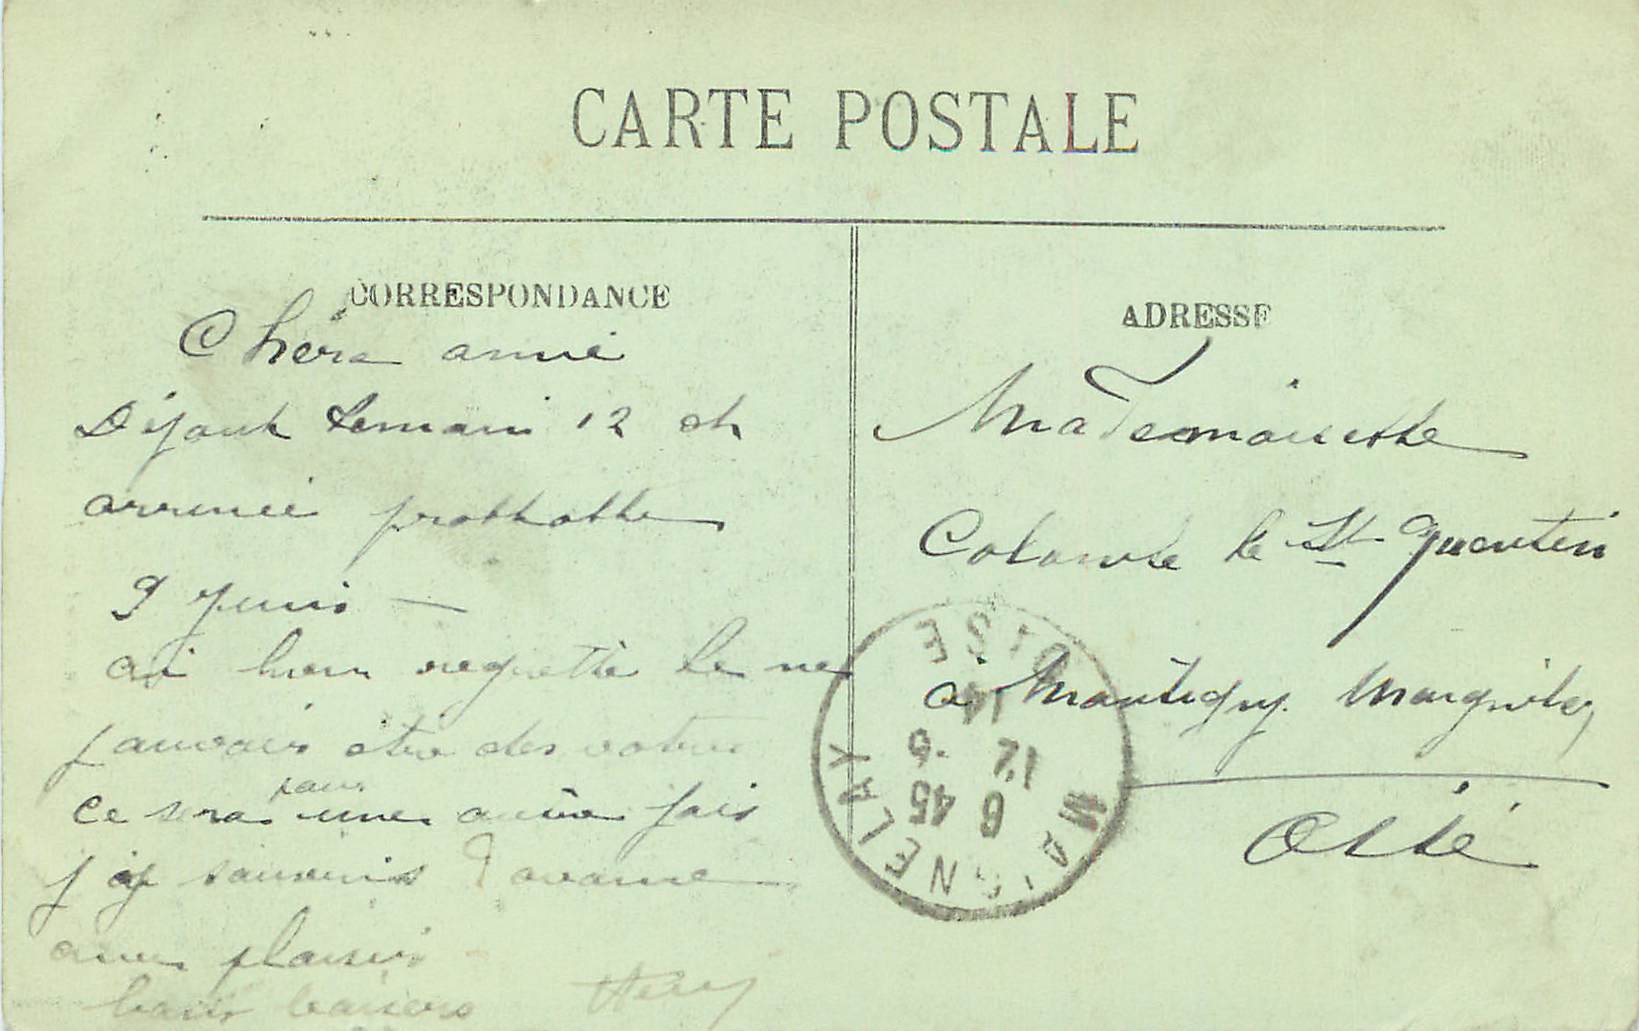 CARTE POSTALE
CORRESPONDANCE
Chère amie
Départ demain 12 et
arrivée probable
9 Juin —
ai bien regretté de ne
pouvoir être des votres
ce sera pour une autre fois
avance
avec plaisir
bons baisers
ADRESSE
Mademoiselle
de St Quentin
à Montigny
Oise
MAIGNELAY
OISE
6 45
12 - 6
14